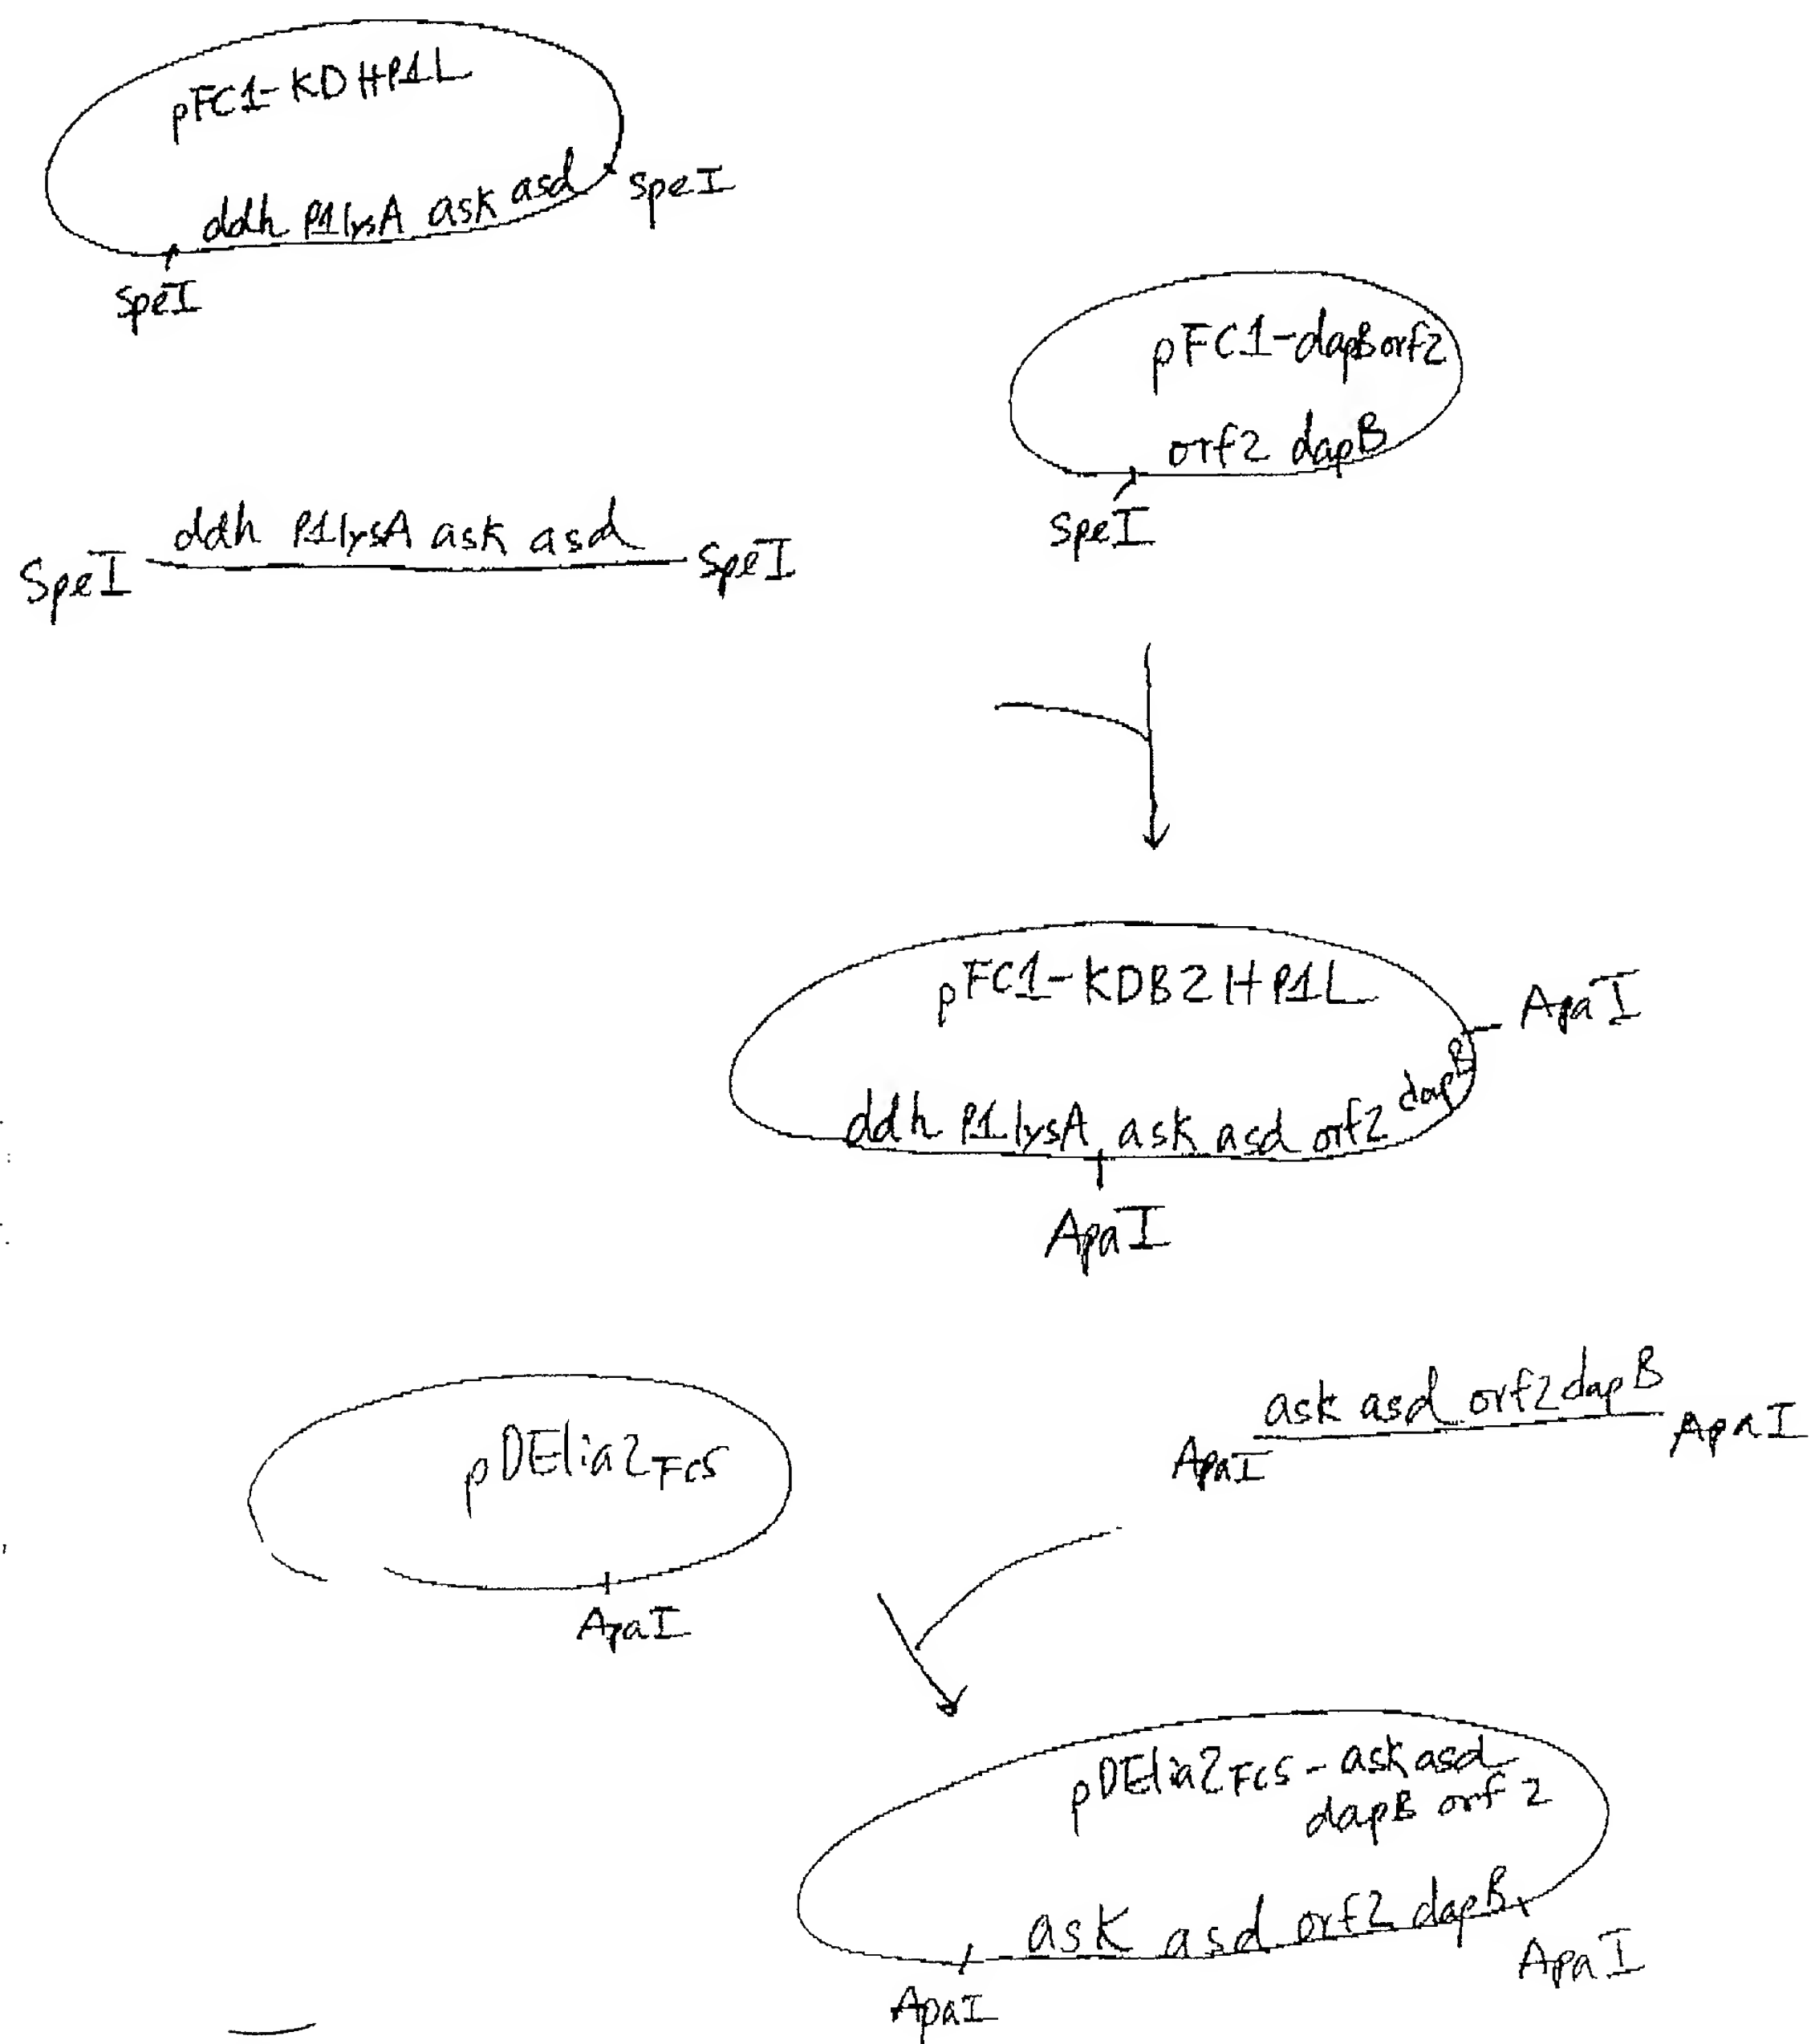 pFC1-KDHP1L
ddh P1lysA ask asd
SpeI
SpeI
pFC1-dapBorf2
orf2 dapB
SpeI
ddh P1lysA ask asd
SpeI
SpeI
pFC1-KDB2HP1L
ApaI
ddh P1lysA ask asd orf2 dapB
ApaI
pDElia2FC5
ApaI
ask asd orf2 dapB
ApaI
ApaI
pDElia2FC5-ask asd
dapB orf2
ask asd orf2 dapB
ApaI
ApaI